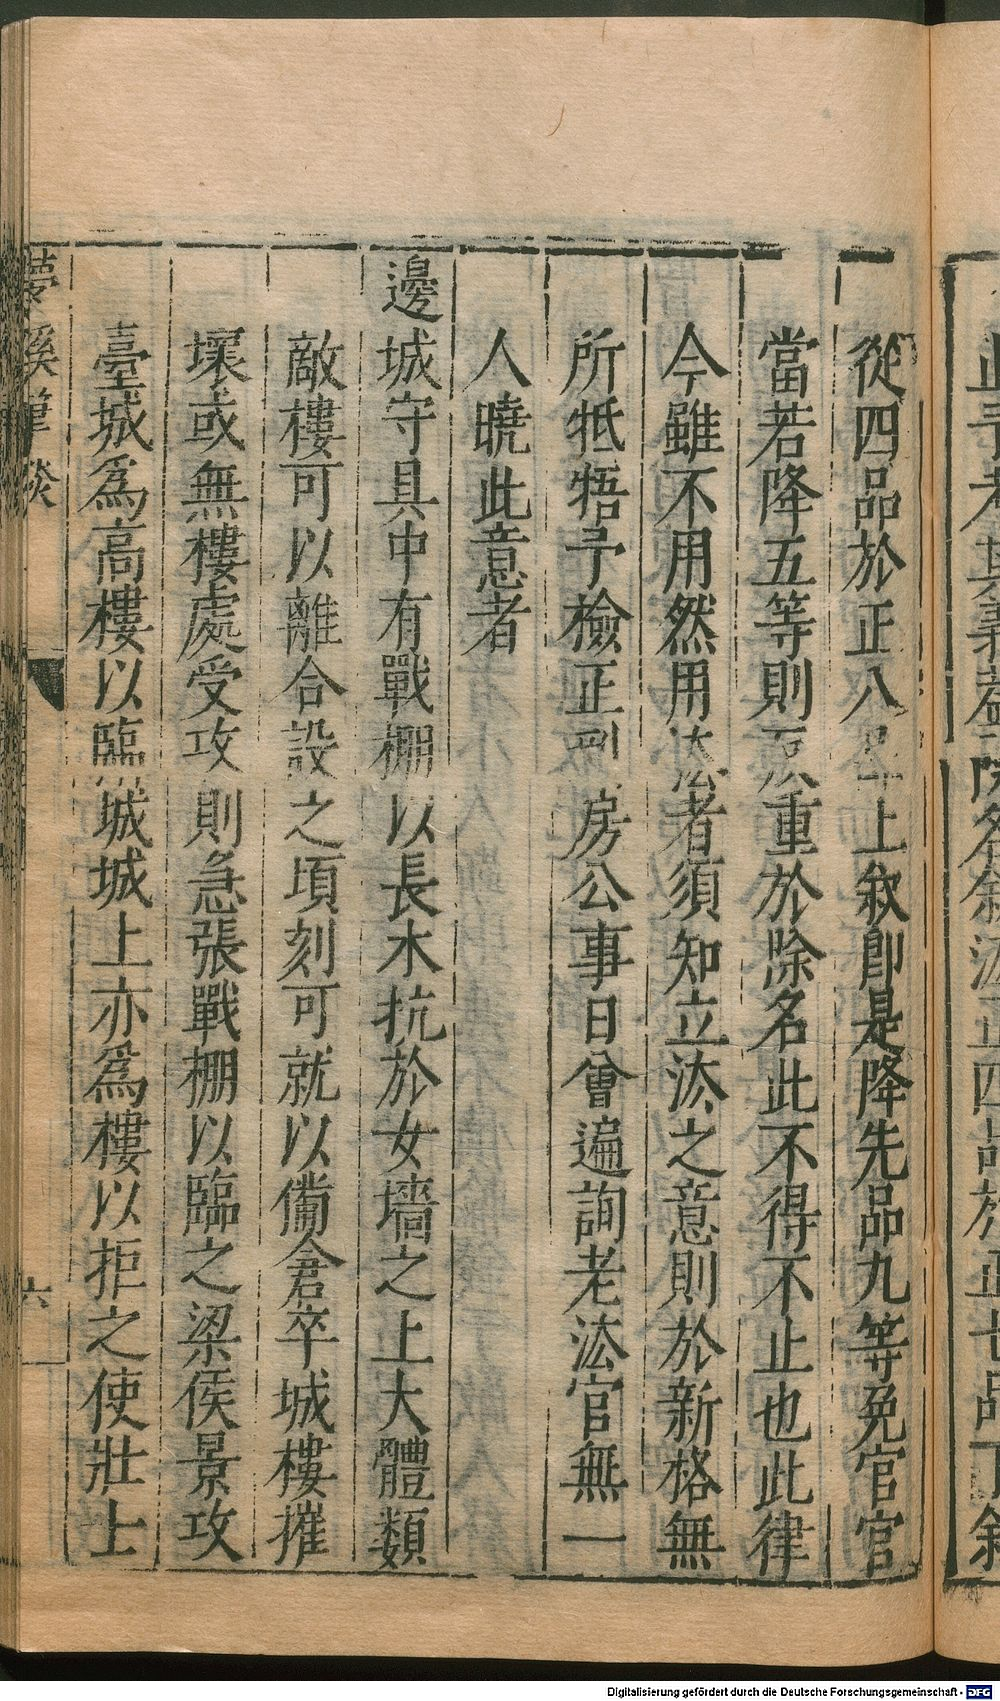 從四品於正八品上敘即是降先品九等免官官
當若降五等則反重於除名此不得不止也此律
今雖不用然用法者須知立法之意則於新格無
所牴牾予檢正刑房公事日曾遍詢老法官無一
人曉此意者
邊城守具中有戰棚以長木抗於女墻之上大體類
敵樓可以離合設之頃刻可就以備倉卒城樓摧
壞或無樓處受攻則急張戰棚以臨之梁侯景攻
臺城為高樓以臨城城上亦為樓以拒之使壯士
夢溪筆談
六
Digitalisierung gefördert durch die Deutsche Forschungsgemeinschaft - DFG